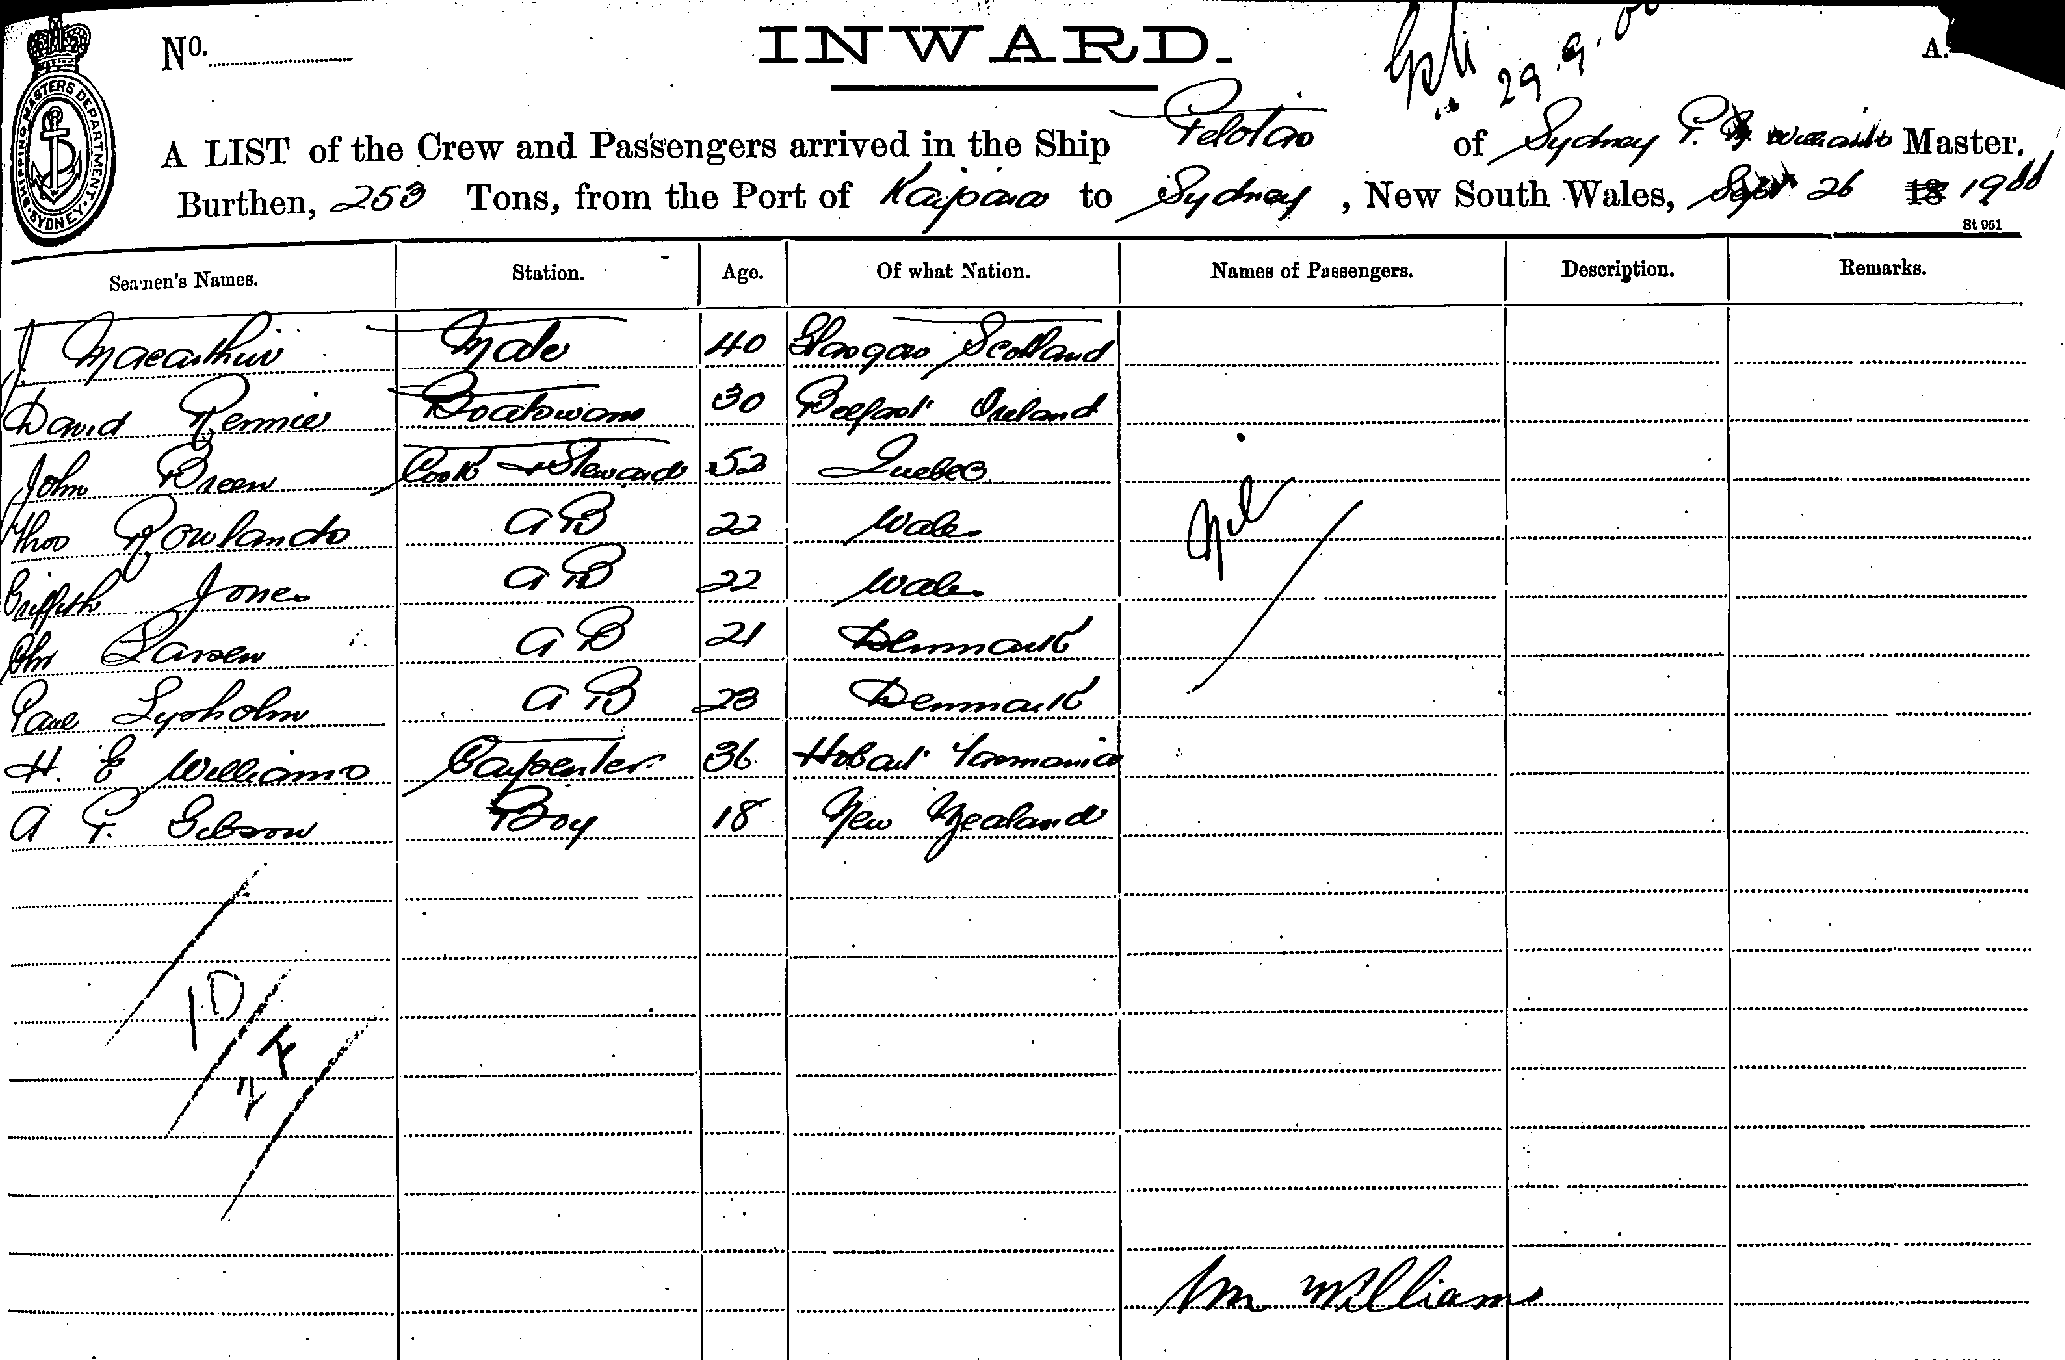 No.
INWARD.
29.9.00
A.
SHIPPING MASTERS DEPARTMENT SYDNEY
A LIST of the Crew and Passengers arrived in the Ship Pelotas of Sydney Williams Master.
Burthen, 253 Tons, from the Port of Kaipara to Sydney, New South Wales, Sept 26 18 1900
St 961
Seamen's Names. Station. Age. Of what Nation. Names of Passengers. Description. Remarks.
J Macarthur Mate 40 Glasgow Scotland
David Rennie Boatswain 30 Belfast Ireland
John Breen Cook & Steward 52 Quebec
Thos Rowlands A B 22 Wales Nil
Griffith Jones A B 22 Wales
Chr Larsen A B 21 Denmark
Paul Lysholm A B 23 Denmark
H. E Williams Carpenter 36 Hobart Tasmania
A F. Gibson Boy 18 New Zealand
1D
2F
Wm Williams